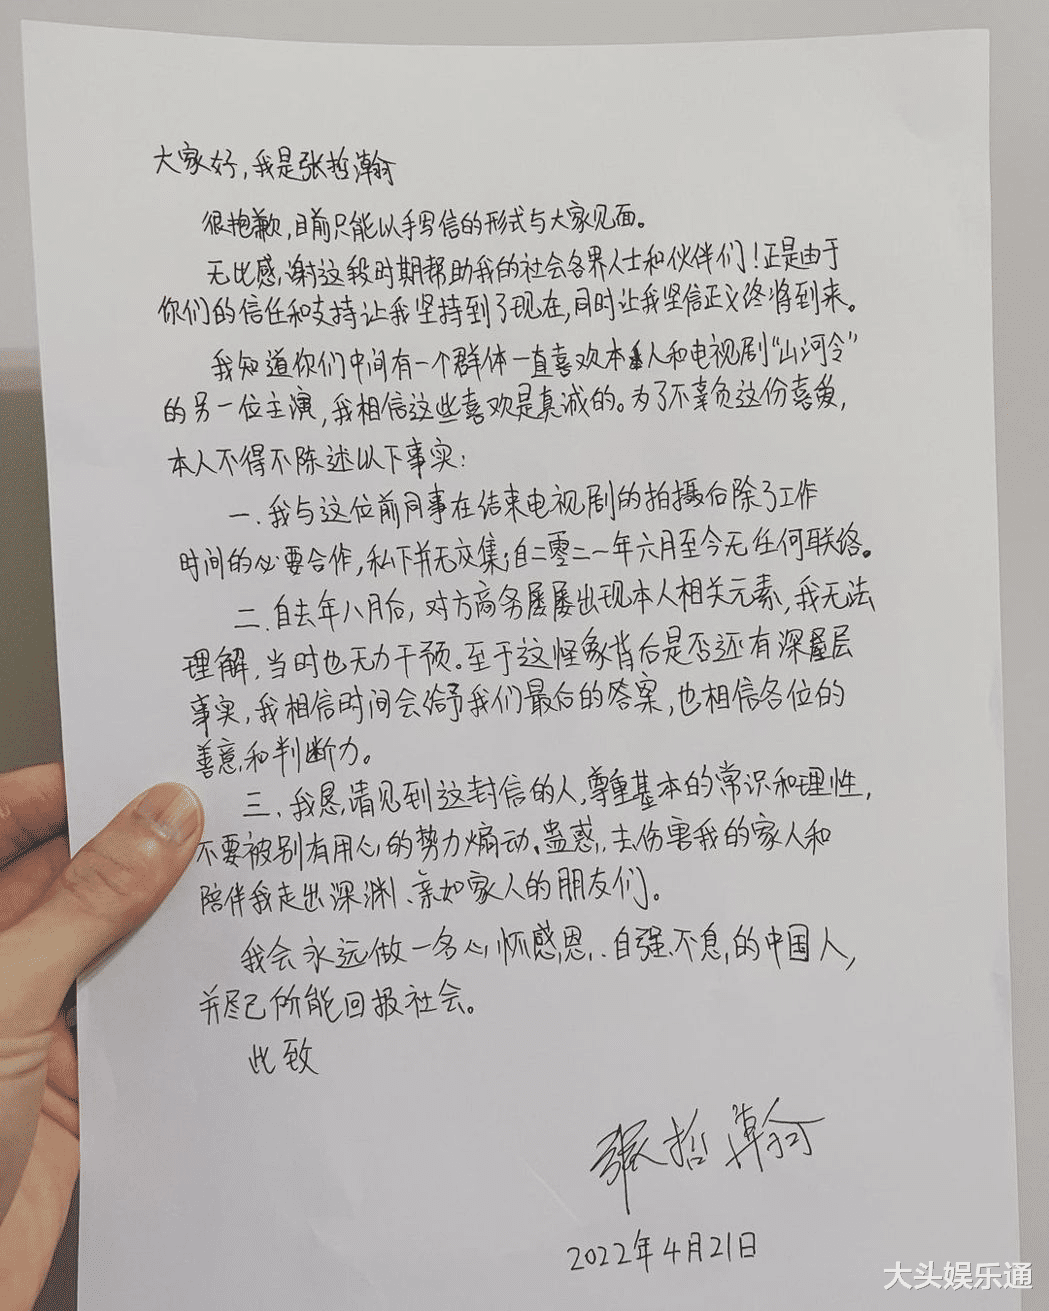 大家好,我是张哲瀚
很抱歉,目前只能以手写信的形式与大家见面。
无比感谢这段时期帮助我的社会各界人士和伙伴们!正是由于
你们的信任和支持让我坚持到了现在,同时让我坚信正义终将到来。
我知道你们中间有一个群体一直喜欢本人和电视剧“山河令”
的另一位主演,我相信这些喜欢是真诚的。为了不辜负这份喜爱,
本人不得不陈述以下事实:
一.我与这位前同事在结束电视剧的拍摄后除了工作
时间的必要合作,私下并无交集;自二零二一年六月至今无任何联络。
二.自去年八月后,对方商务屡屡出现本人相关元素,我无法
理解,当时也无力干预。至于这怪象背后是否还有深层
事实,我相信时间会给予我们最后的答案,也相信各位的
善意和判断力。
三、我恳请见到这封信的人,尊重基本的常识和理性,
不要被别有用心的势力煽动、蛊惑,去伤害我的家人和
陪伴我走出深渊、亲如家人的朋友们。
我会永远做一名心怀感恩、自强不息的中国人,
并尽己所能回报社会。
此致
张哲瀚
2022年4月21日
大头娱乐通